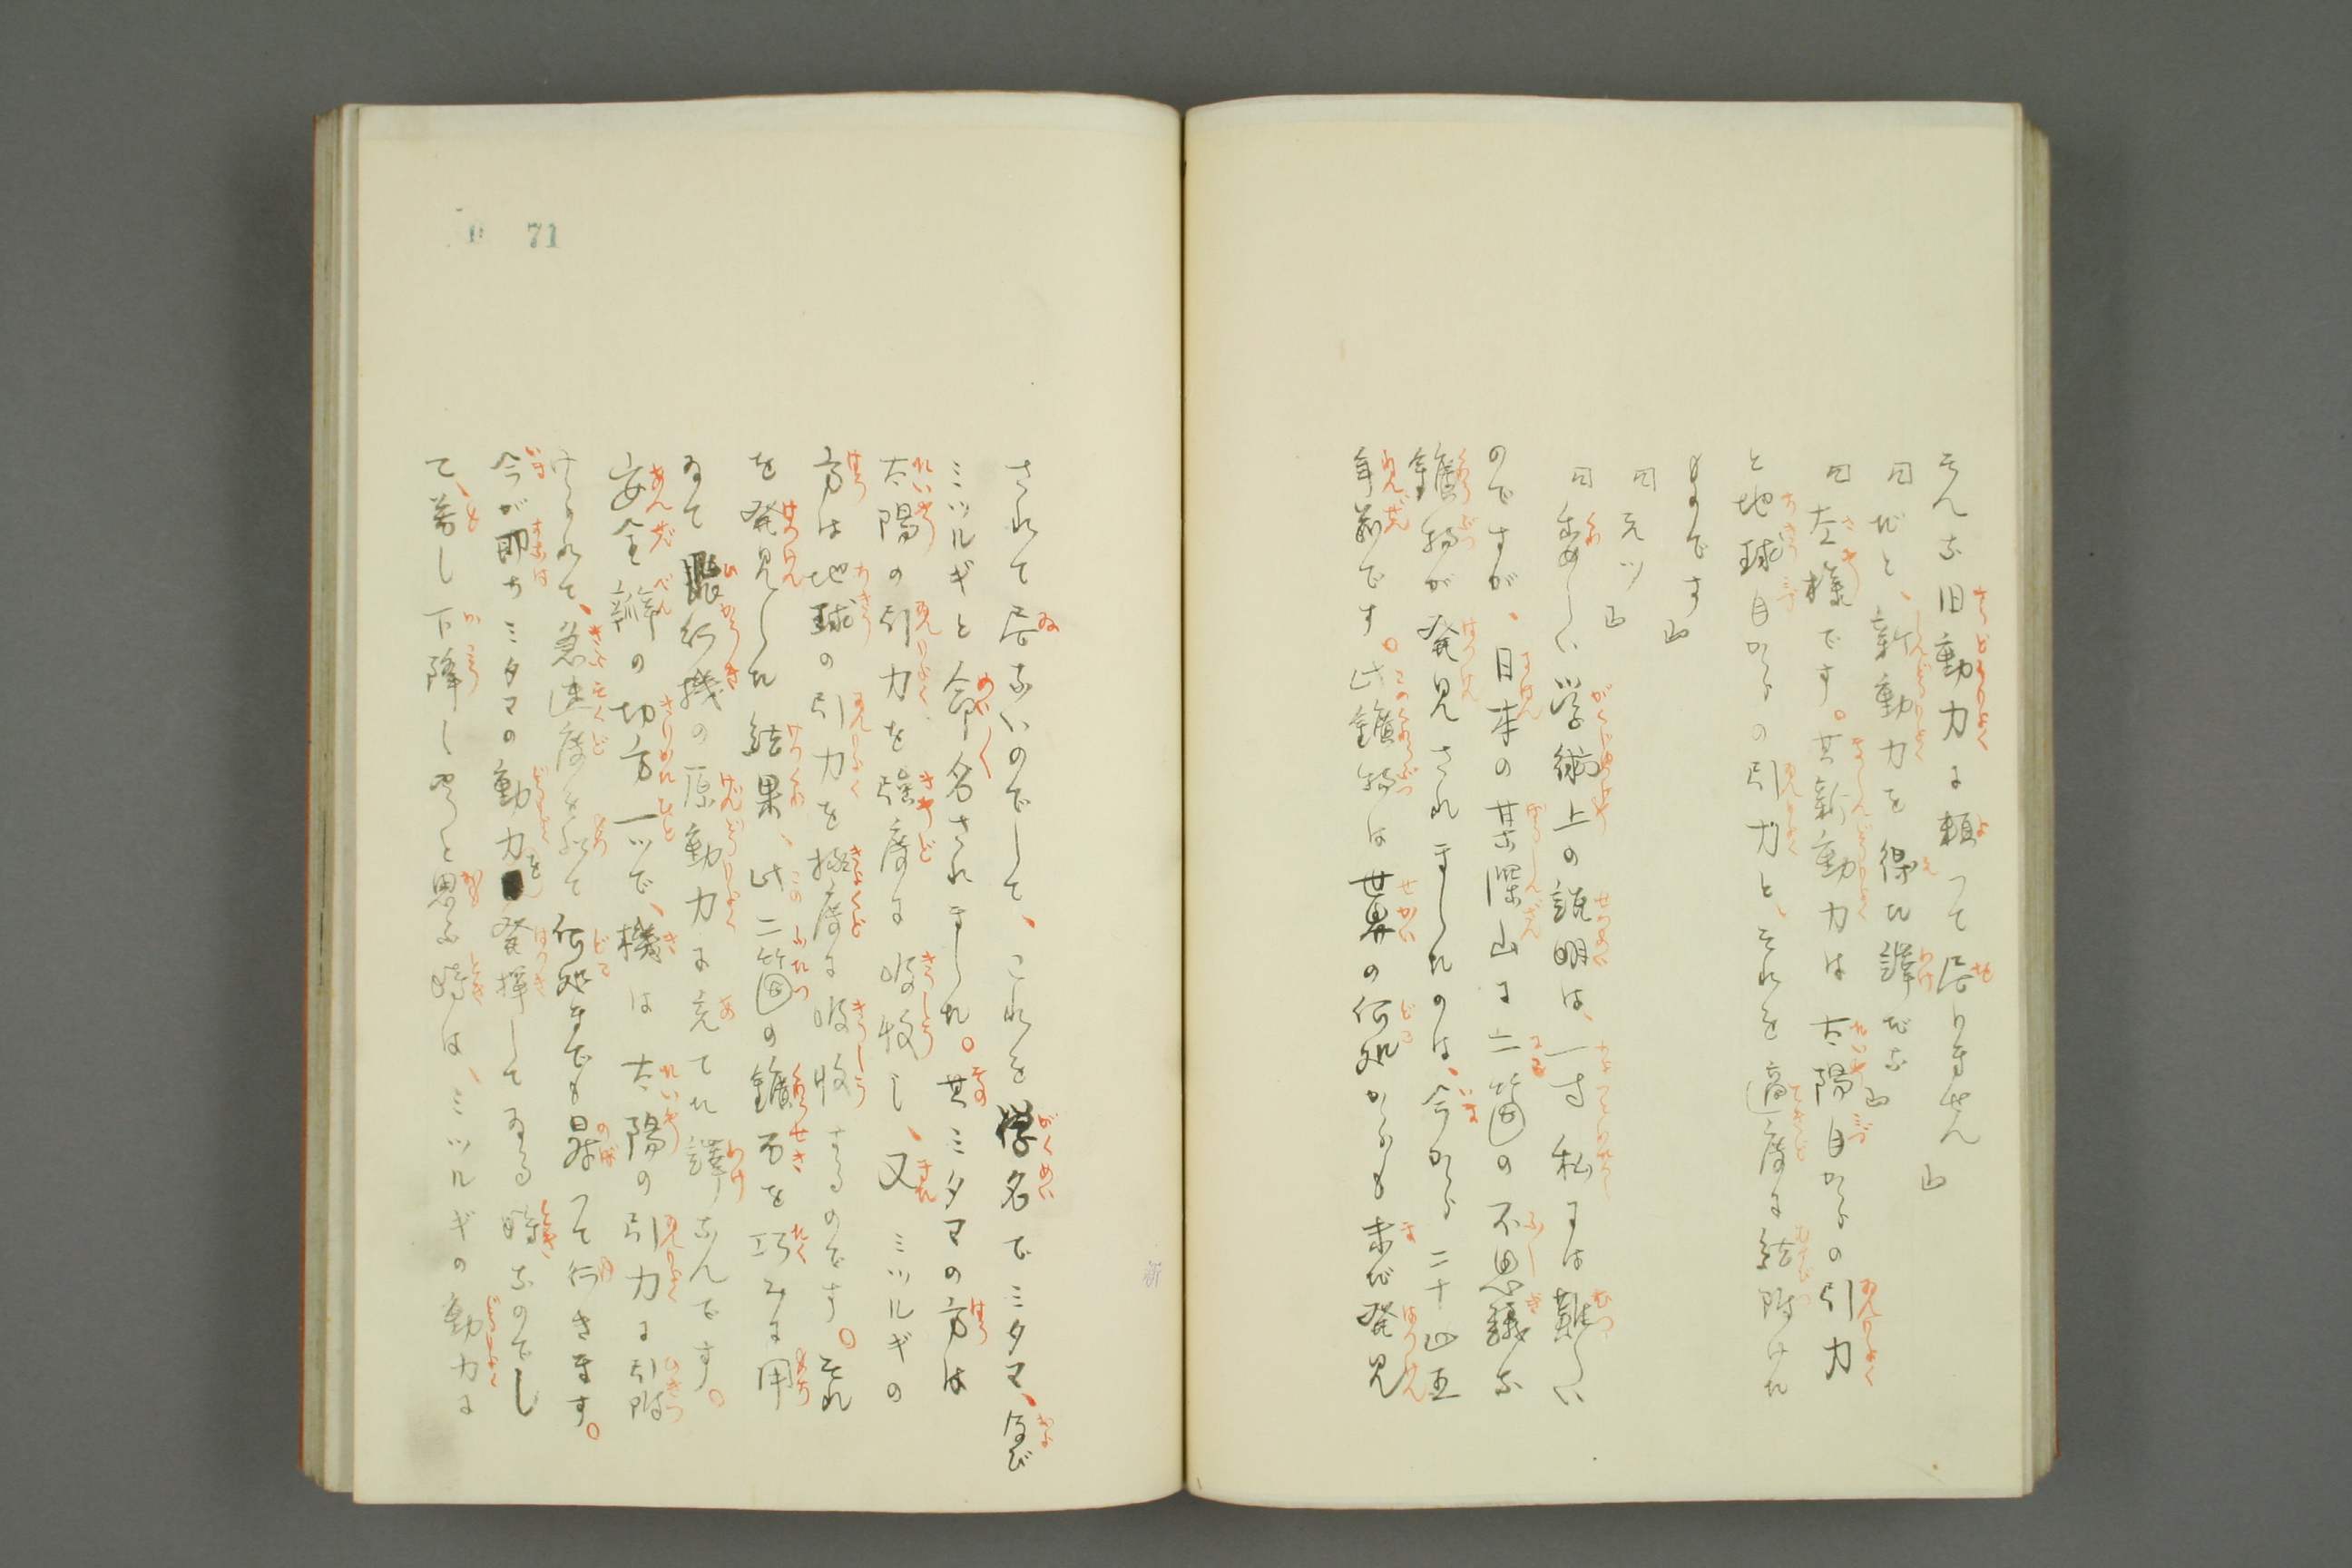 そんな旧動力に頼つて居りません」
「だと、新動力を得た譯だな」
「左様です。其新動力は太陽自からの引力
と地球自からの引力と、それを適度に結附けた
ものです」
「えツ」
「委しい学術上の説明は、一寸私には難しい
のですが、日本の某深山に二箇の不思議な
鑛物が発見されましたのは、今から二十五
年前です。此鑛物は世界の何処からも未だ発見
されて居ないのでして、これを学名でミタマ、及び
ミツルギと命名されました。其ミタマの方は
太陽の引力を強度に吸收し、又ミツルギの
方は地球の引力を極度に吸收するのです。それ
を発見した結果、此二箇の鑛石を巧みに用
ゐて飛行機の原動力に充てた譯なんです。
安全瓣の切方一ツで、機は太陽の引力に引附
けられて、急速度を以て何処までも昇つて行きます。
今が即ちミタマの動力を発揮してゐる時なのでし
て、若し下降しやうと思ふ時は、ミツルギの動力に
71